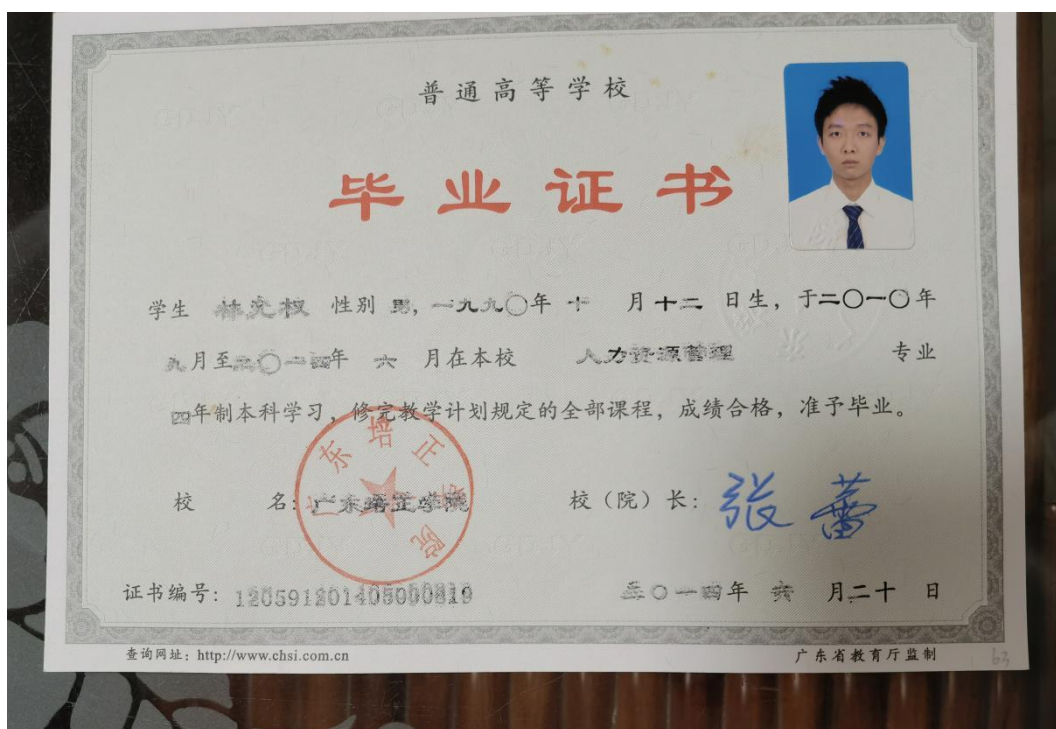 普通高等学校
毕业证书
学生 林文权 性别 男, 一九九〇年 十 月 十二 日生, 于二〇一〇年
九月至二〇一四年 六 月在本校 人力资源管理 专业
四年制本科学习, 修完教学计划规定的全部课程, 成绩合格, 准予毕业。
校 名: 广东培正学院 校(院)长: 张蕾
广东培正学院
证书编号: 120591201405000819 二〇一四年 六 月二十 日
查询网址: http://www.chsi.com.cn 广东省教育厅监制
63